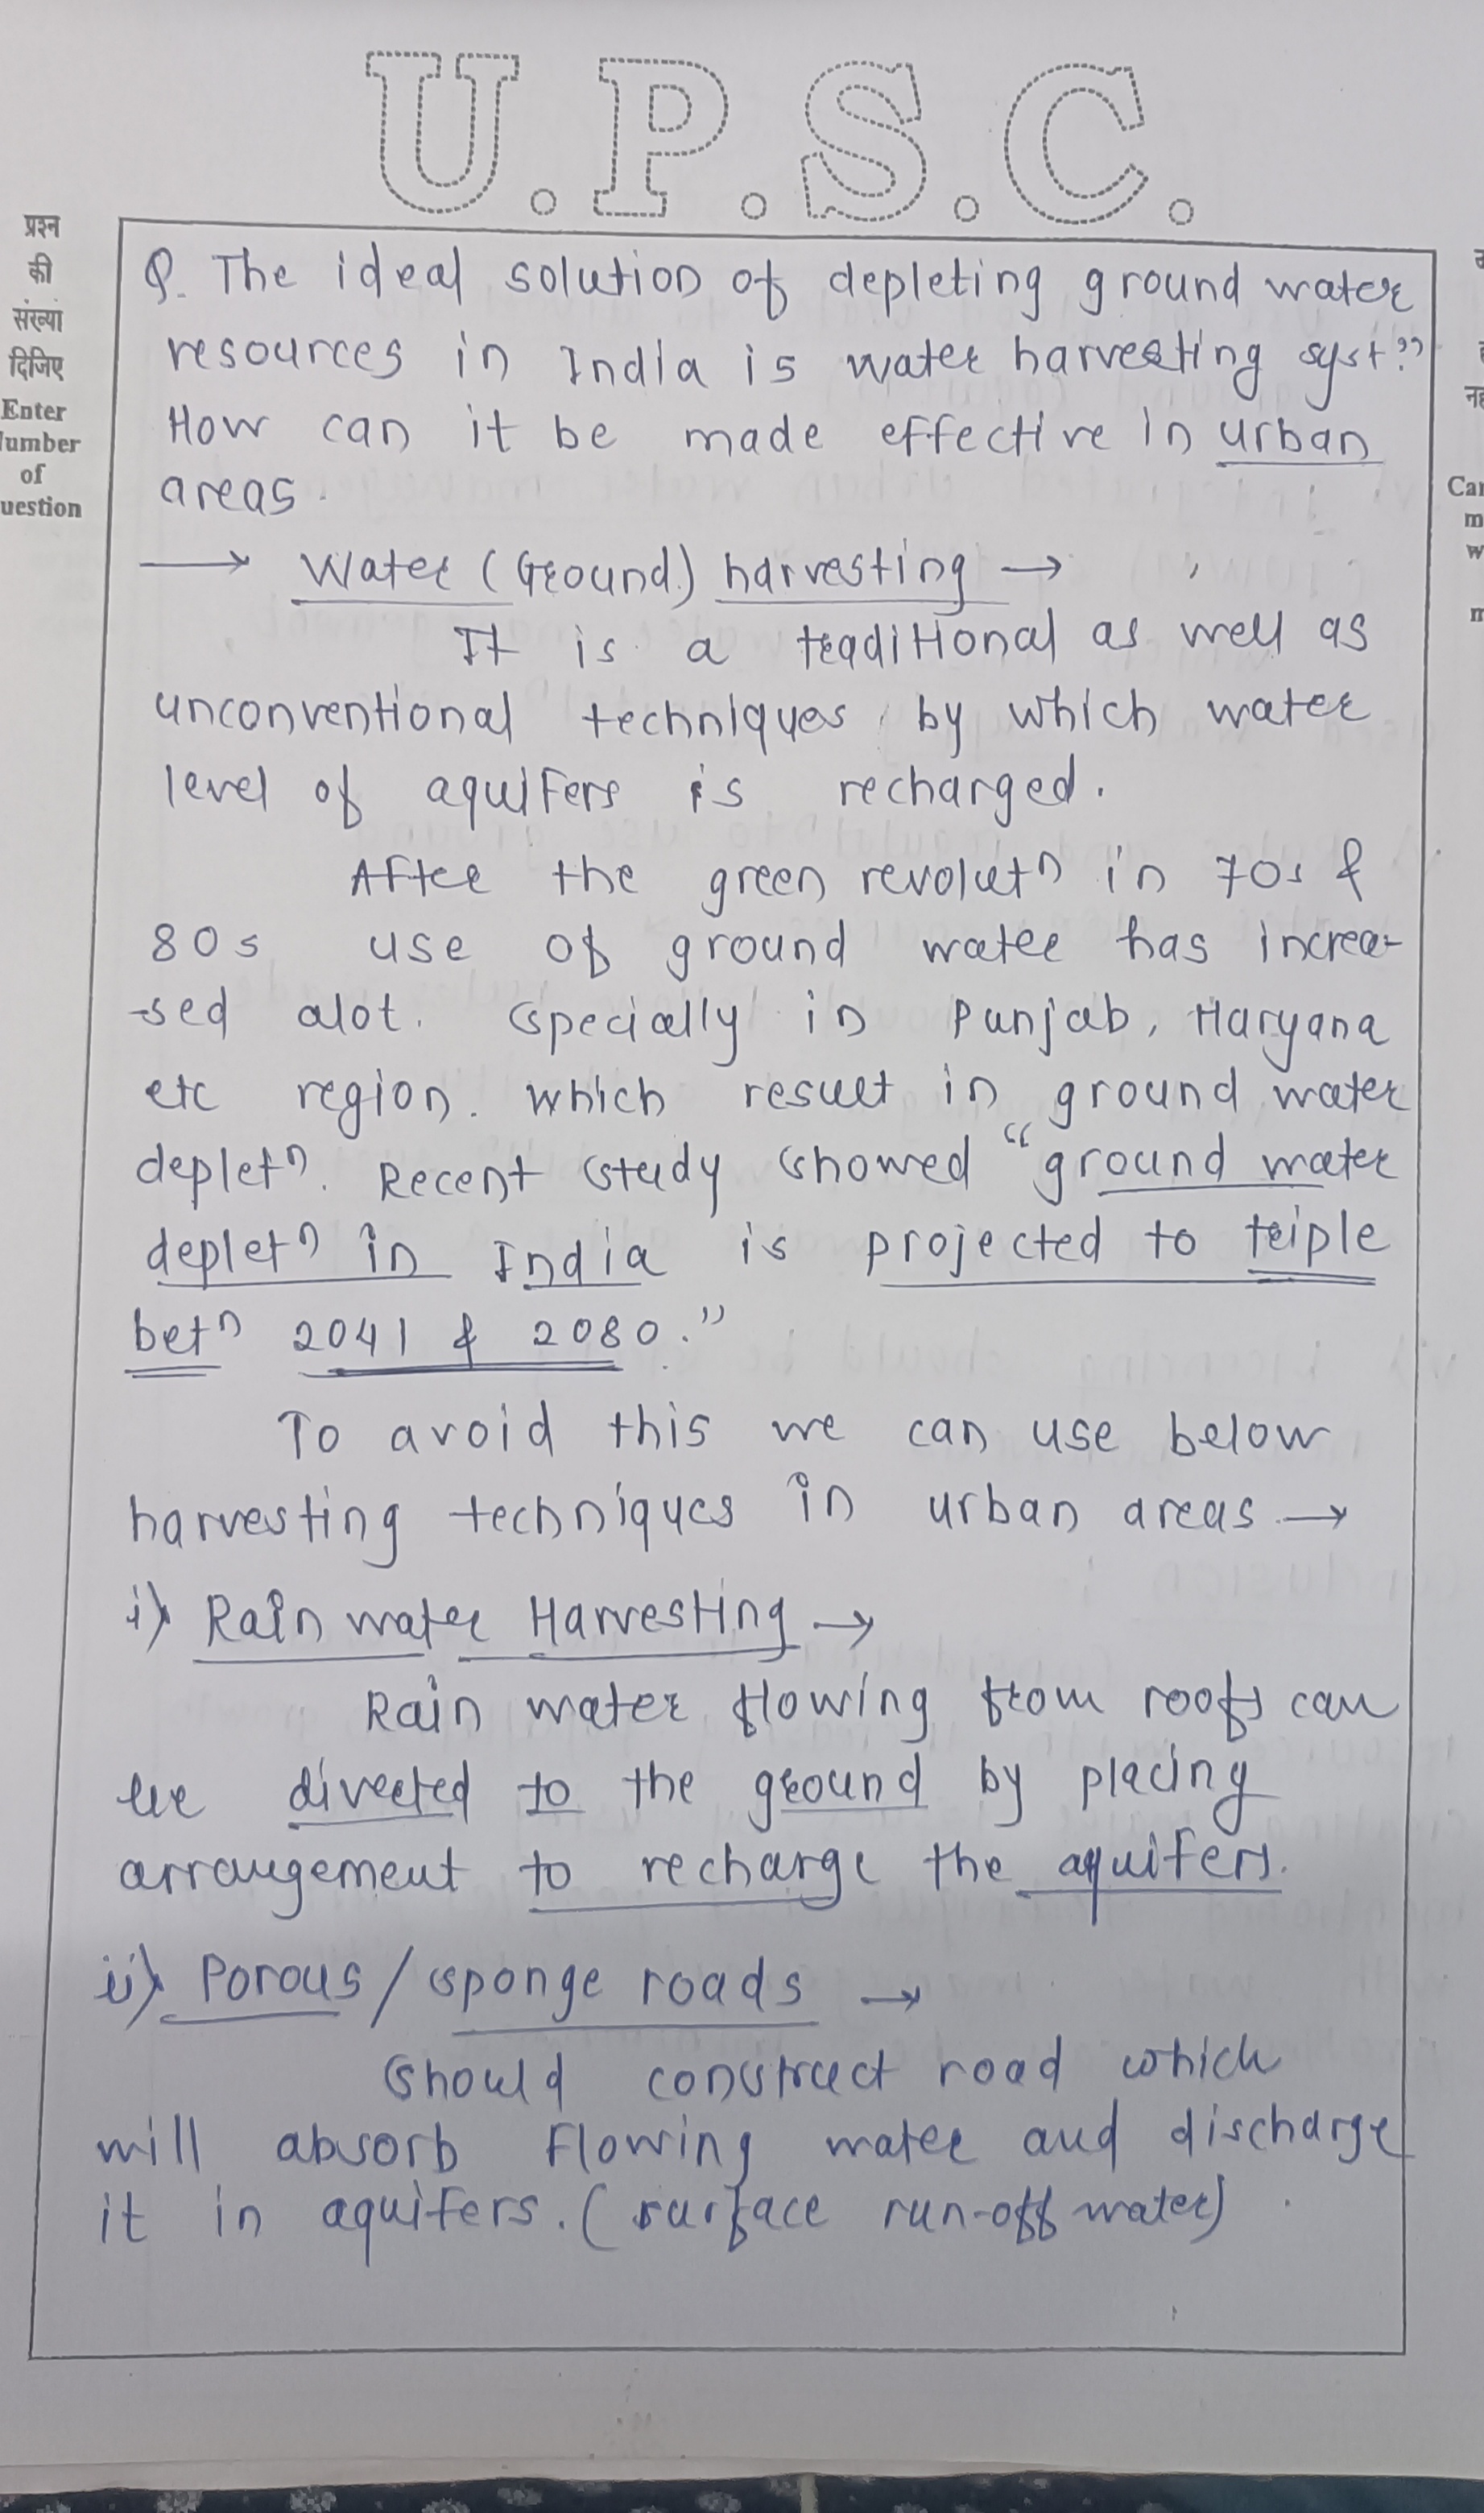 U.P.S.C.
प्रश्न
की
संख्या
दिजिए
Enter
Number
of
uestion
Q. The ideal solution of depleting ground water
resources in India is water harvesting syst?"
How can it be made effective in urban
areas.
→ Water (Ground) harvesting →
It is a traditional as well as
unconventional techniques by which water
level of aquifers is recharged.
After the green revolutn in 70s &
80s use of ground water has increa-
-sed alot. specially in Punjab, Haryana
etc region. which result in ground water
depletn. Recent study showed "ground water
depletn in India is projected to triple
betn 2041 & 2080."
To avoid this we can use below
harvesting techniques in urban areas →
i) Rain water Harvesting →
Rain water flowing from roofs can
be diverted to the ground by placing
arrangement to recharge the aquifers.
ii) Porous / sponge roads →
Should construct road which
will absorb flowing water and discharge
it in aquifers. (surface run-off water)